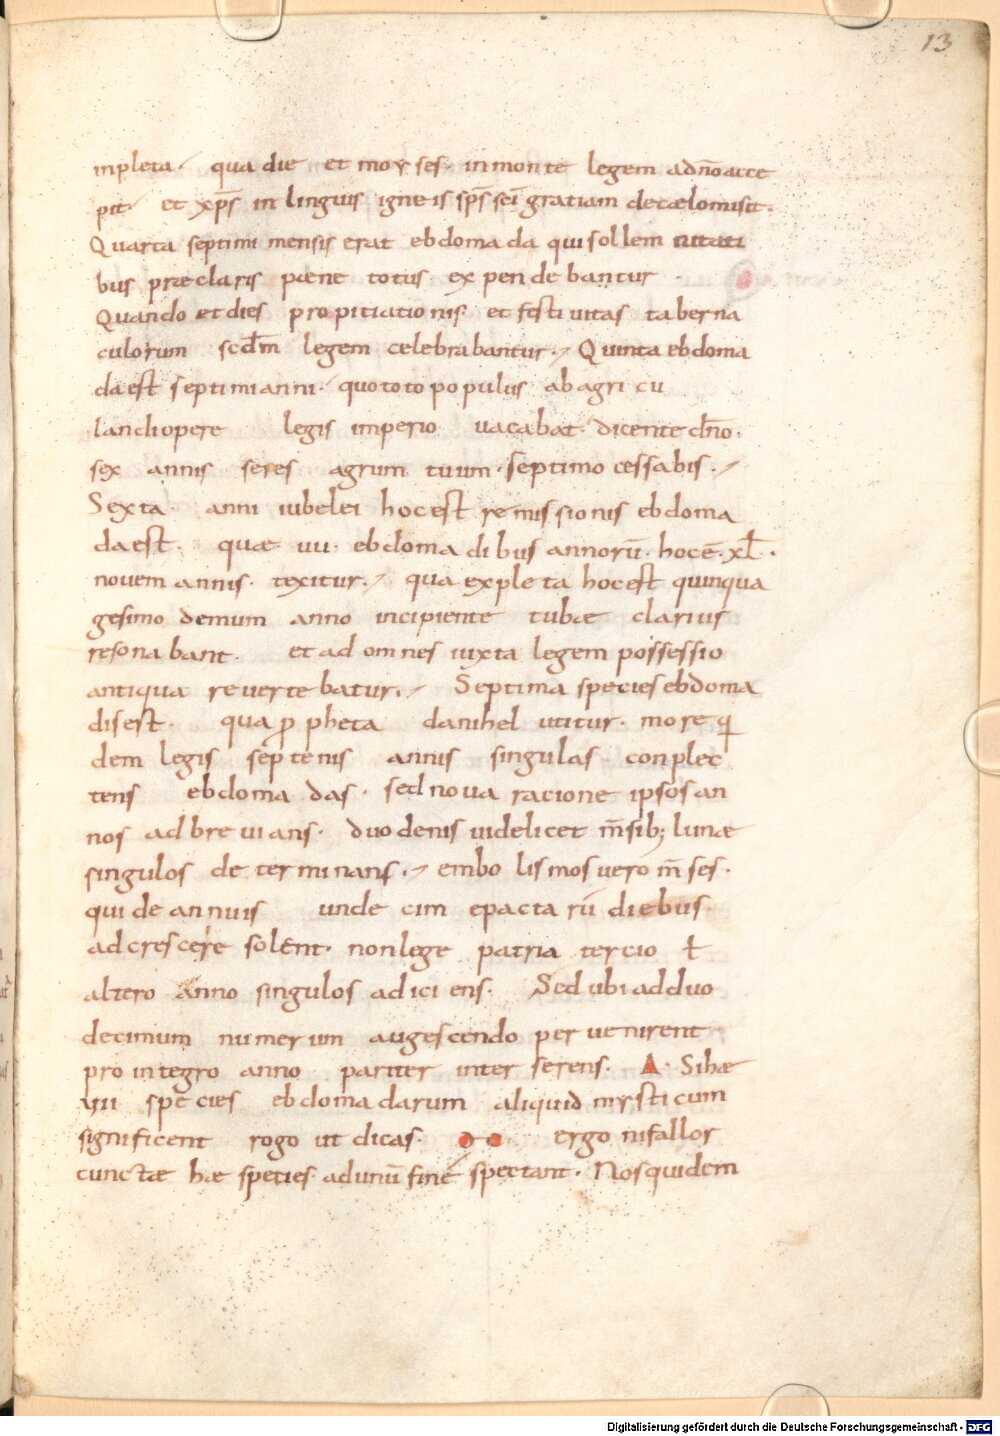 13
inpleta. qua die et moyses. in monte legem adn̄o acce
pit. et xp̄s in linguis igneis sp̄s sc̄i gratiam de cælo misit.
Quarta septimi mensis erat ebdomada qui sollemnitati
bus præclaris pæne totus expendebantur.
Quando et dies propitiationis. et festivitas taberna
culorum scdm̄ legem celebrabantur. Quinta ebdoma
da est septimi anni. quo toto populus ab agri cu
landi opere legis imperio vacabat. dicente dn̄o.
sex annis seres agrum tuum. septimo cessabis.
Sexta. anni iubelei hoc est remissionis ebdoma
da est. quæ uii. ebdomadibus annorū. hoc ē. xl.
novem annis. texitur. qua expleta hoc est quinqua
gesimo demum anno incipiente tubæ clarius
resonabant. et ad omnes iuxta legem possessio
antiqua revertebatur. Septima species ebdoma
dis est. qua ꝓpheta danihel utitur. more q̄
dem legis septenis annis singulas conplec
tens ebdomadas. sed nova racione ipsos an
nos adbrevians. duodenis videlicet m̄sib; lunæ
singulos determinans. embolismos vero m̄ses.
qui de annuis undecim epactarū diebus
adcrescere solent. non lege patria tercio ł
altero anno singulos adiciens. Sed ubi ad duo
decimum numerum augescendo pervenirent
pro integro anno pariter inter serens. Δ. Si hæ
vii species ebdomadarum aliquid mysticum
significent rogo ut dicas. ergo ni fallor
cunctæ hæ species ad unū finē spectant. Nos quidem
Digitalisierung gefördert durch die Deutsche Forschungsgemeinschaft - DFG